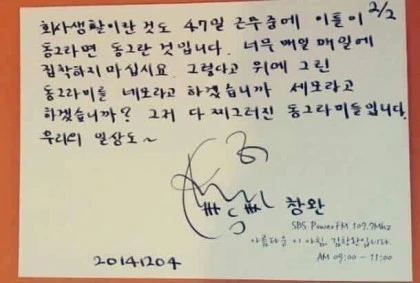 회사생활이란 것도 47일 근무 중에 이틀이 2/2
동그라면 동그란 것입니다. 너무 매일 매일에
집착하지 마십시요. 그렇다고 위에 그린
동그라미를 네모라고 하겠습니까 세모라고
하겠습니까? 그저 다 찌그러진 동그라미들입니다.
우리의 일상도~
창완
SBS PowerFM 107.7Mhz
아름다운 이 아침, 김창완입니다.
AM 09:00 - 11:00
20141204